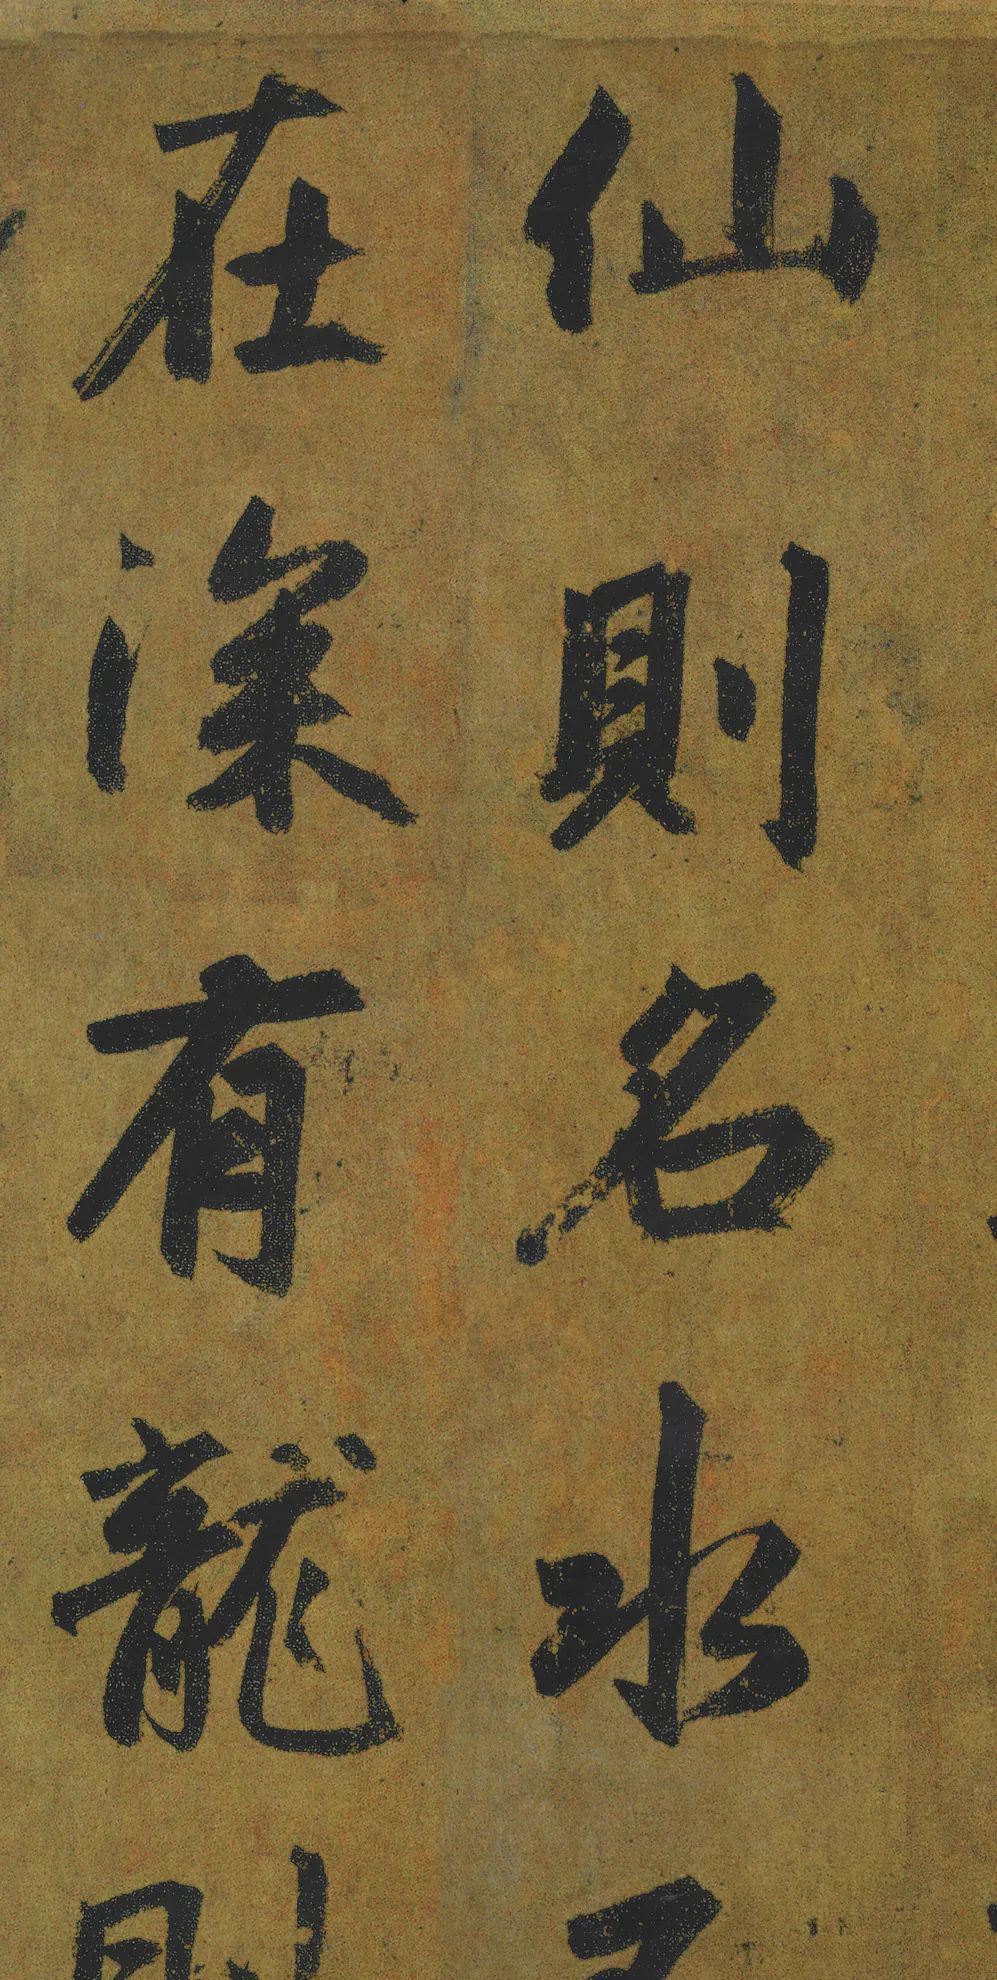 仙則名水
在深有龍則